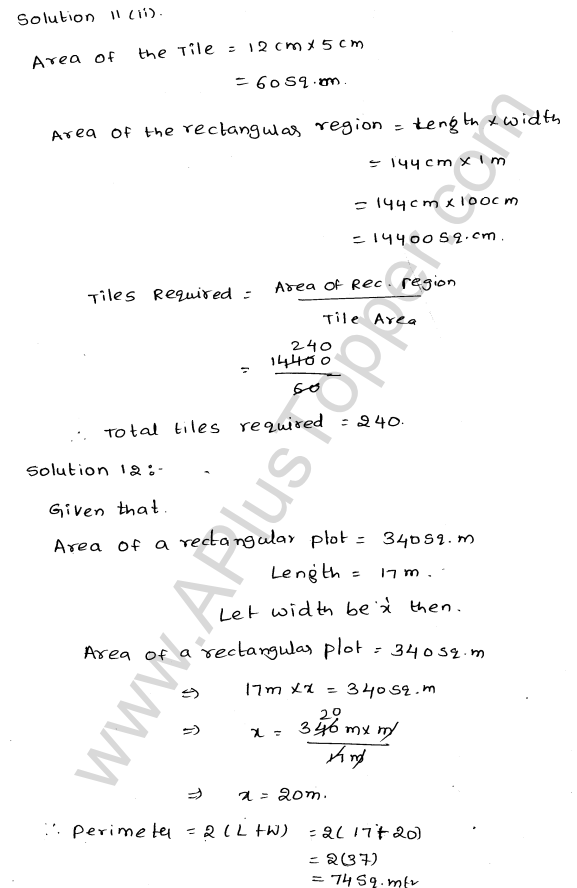 Solution 11(ii).
Area of the Tile = 12cm x 5cm
= 60 Sq.cm.
Area of the rectangular region = Length x width
= 144cm x 1m
= 144cm x 100cm
= 14400 Sq.cm.
Tiles Required = Area of Rec. region
Tile Area
240
= 14400
60
∴ Total tiles required = 240.
Solution 12:-
Given that.
Area of a rectangular plot = 340 Sq.m
Length = 17m.
Let width be 'x' then.
Area of a rectangular plot = 340 Sq.m
⇒ 17m x x = 340 Sq.m
20
⇒ x = 340 m x m
17 m
⇒ x = 20m.
∴ Perimeter = 2(L+W) = 2(17+20)
= 2(37)
= 74 Sq.mtr
www.APlusTopper.com